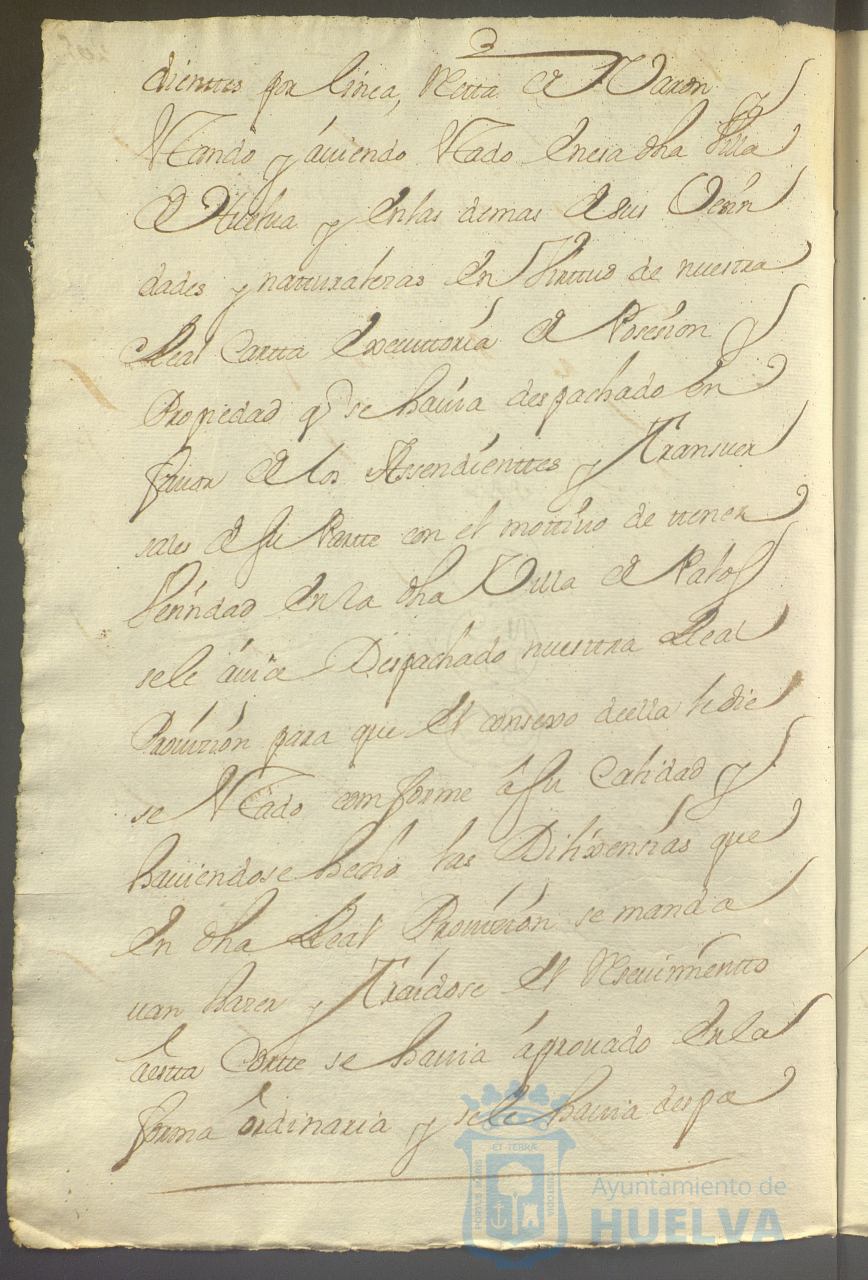 dientes por linea Recta de Varon y
Stando y áuiendo Stado en esa dha Villa
de Huelua y en las demas de sus Vezin
dades y naturalezas en Virttud de nuestra
Real Cartta executtoria de Posesion y
Propiedad q se hauia despachado en
fauor de los Assendienttes y Transuer
sales de su Partte con el mottiuo de ttener
Vezindad en la dha Villa de Palos
se le áuia Despachado nuesttra Real
Prouision para que el Consexo de ella le die
se Stado comforme á su Calidad y
hauiendose hecho las Dilixensias que
en dha Real Prouision se manda
uan hazer y Traidose el
áestta Cortte se hauia áprouado en la
forma ordinaria y se le hauia despa
PORTUS MARIS
ET TERRÆ
CUSTODIA
Ayuntamiento de
HUELVA